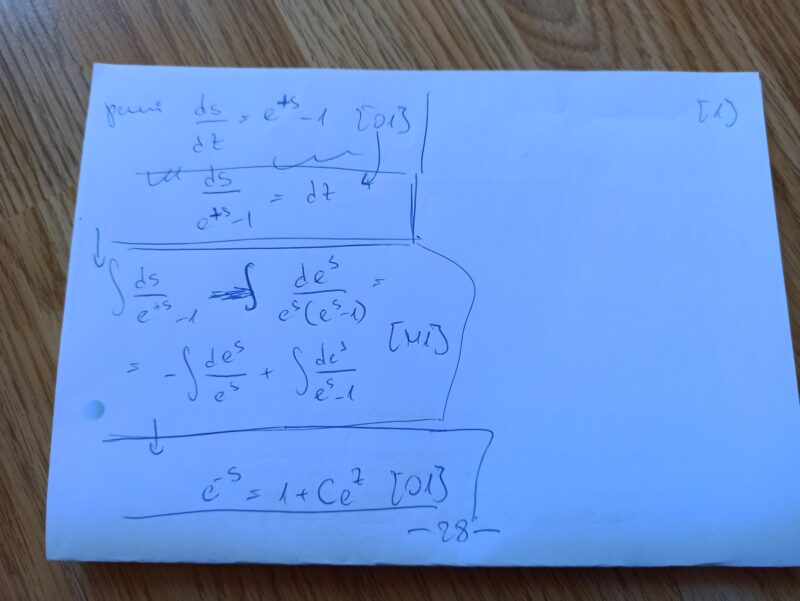 ds/dz = e^{+s} - 1 [01] [1]
ds/(e^{+s} - 1) = dz
↓ ∫ ds/(e^{+s} - 1) = ∫ de^s/(e^s(e^s - 1)) =
= -∫ de^s/e^s + ∫ de^s/(e^s - 1) [M1]
↓
e^{-s} = 1 + Ce^z [01]
-28-